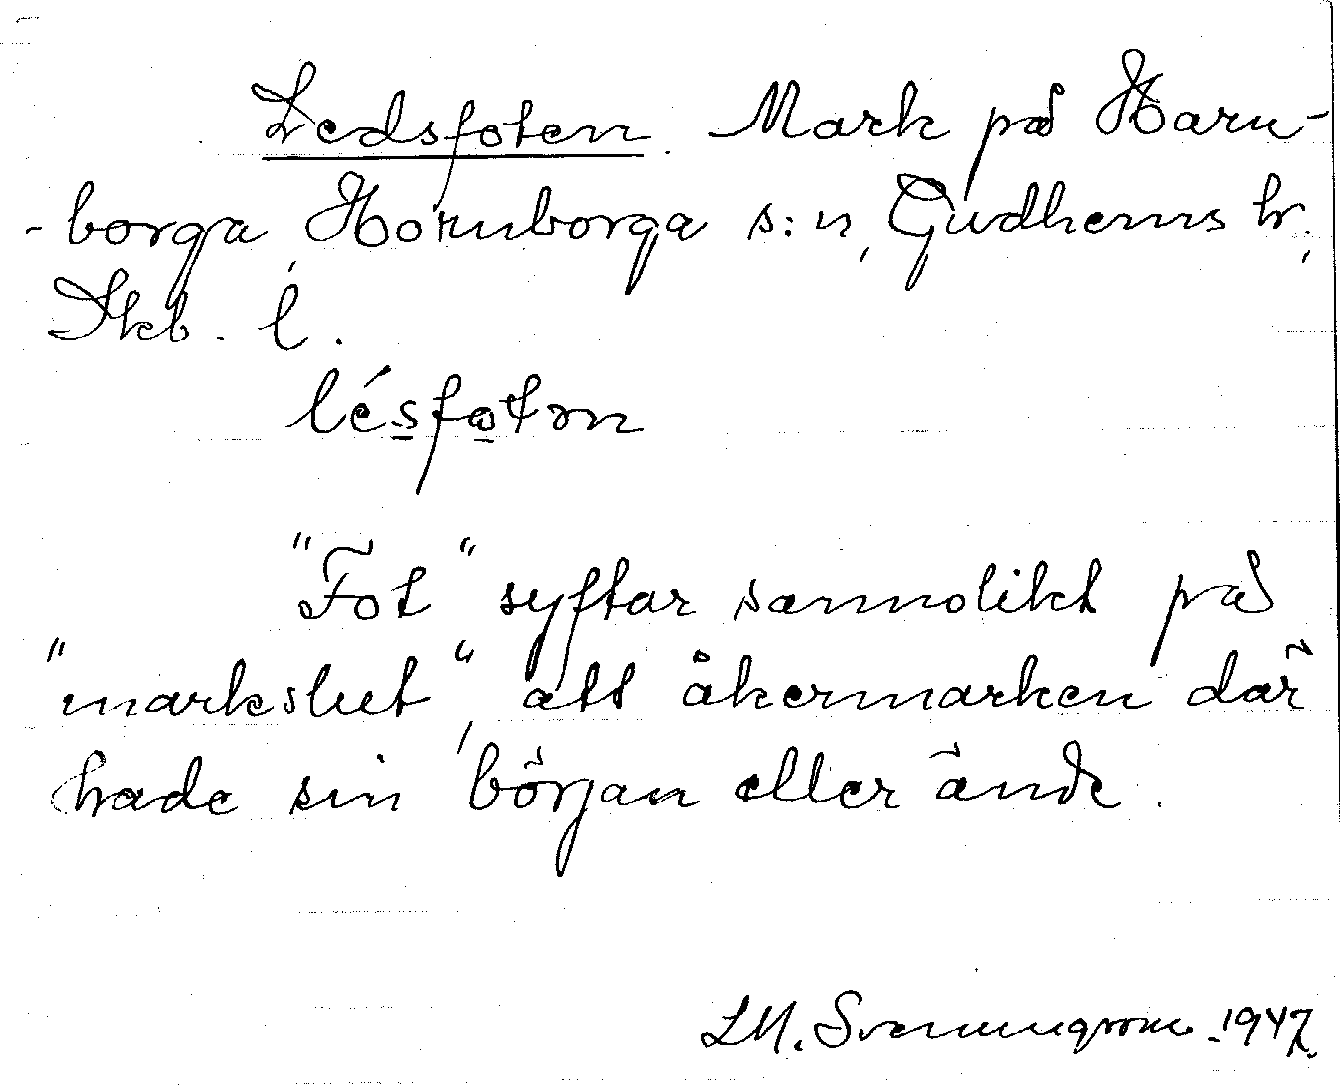 Ledsfoten. Mark på Horn-
-borga, Hornborga s:n, Gudhems hr,
Skb. l.
lésfotən
"Fot" syftar sannolikt på
"markslut", att åkermarken där
hade sin början eller ände.
L.M. Svenungsson. 1947.